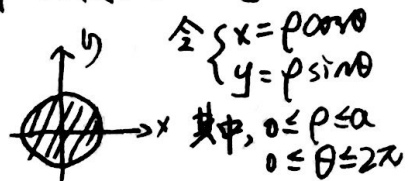 令 { x = ρcosθ
y = ρsinθ
y
x
其中, 0 ≤ ρ ≤ a
0 ≤ θ ≤ 2π